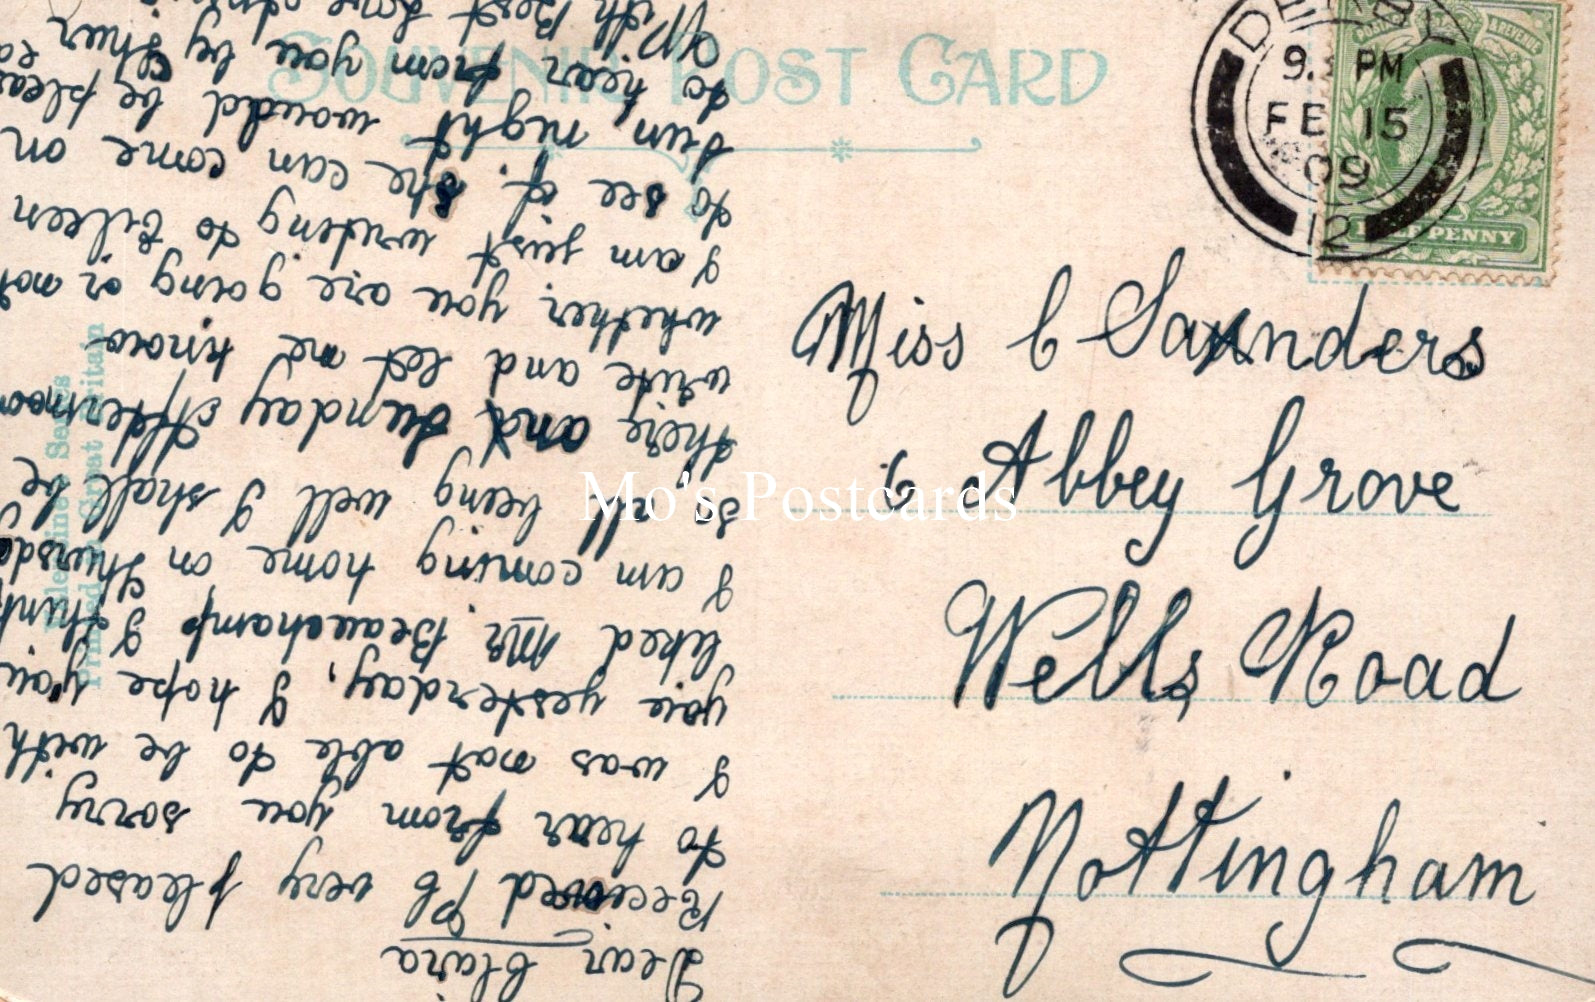 SOUVENIR POST CARD
DERBY
9. PM
FE 15
09
12
POSTAGE REVENUE
HALF PENNY
Miss C Saunders
6 Abbey Grove
Wells Road
Nottingham
Dear Clara
Recieved Pc very pleased
to hear from you sorry
I was not able to be with
you yesterday, I hope you
liked Mr. Beauchamp I think
I am coming home on Thursday
& all being well I shall be
there and Sunday afternoon
write and let me know
whether you are going or not
I am just writing to Eileen
to see if she can come on
Sun, night would be pleased
to hear from you by Thur
With Best Love
Printed Great Britain
Mo's Postcards